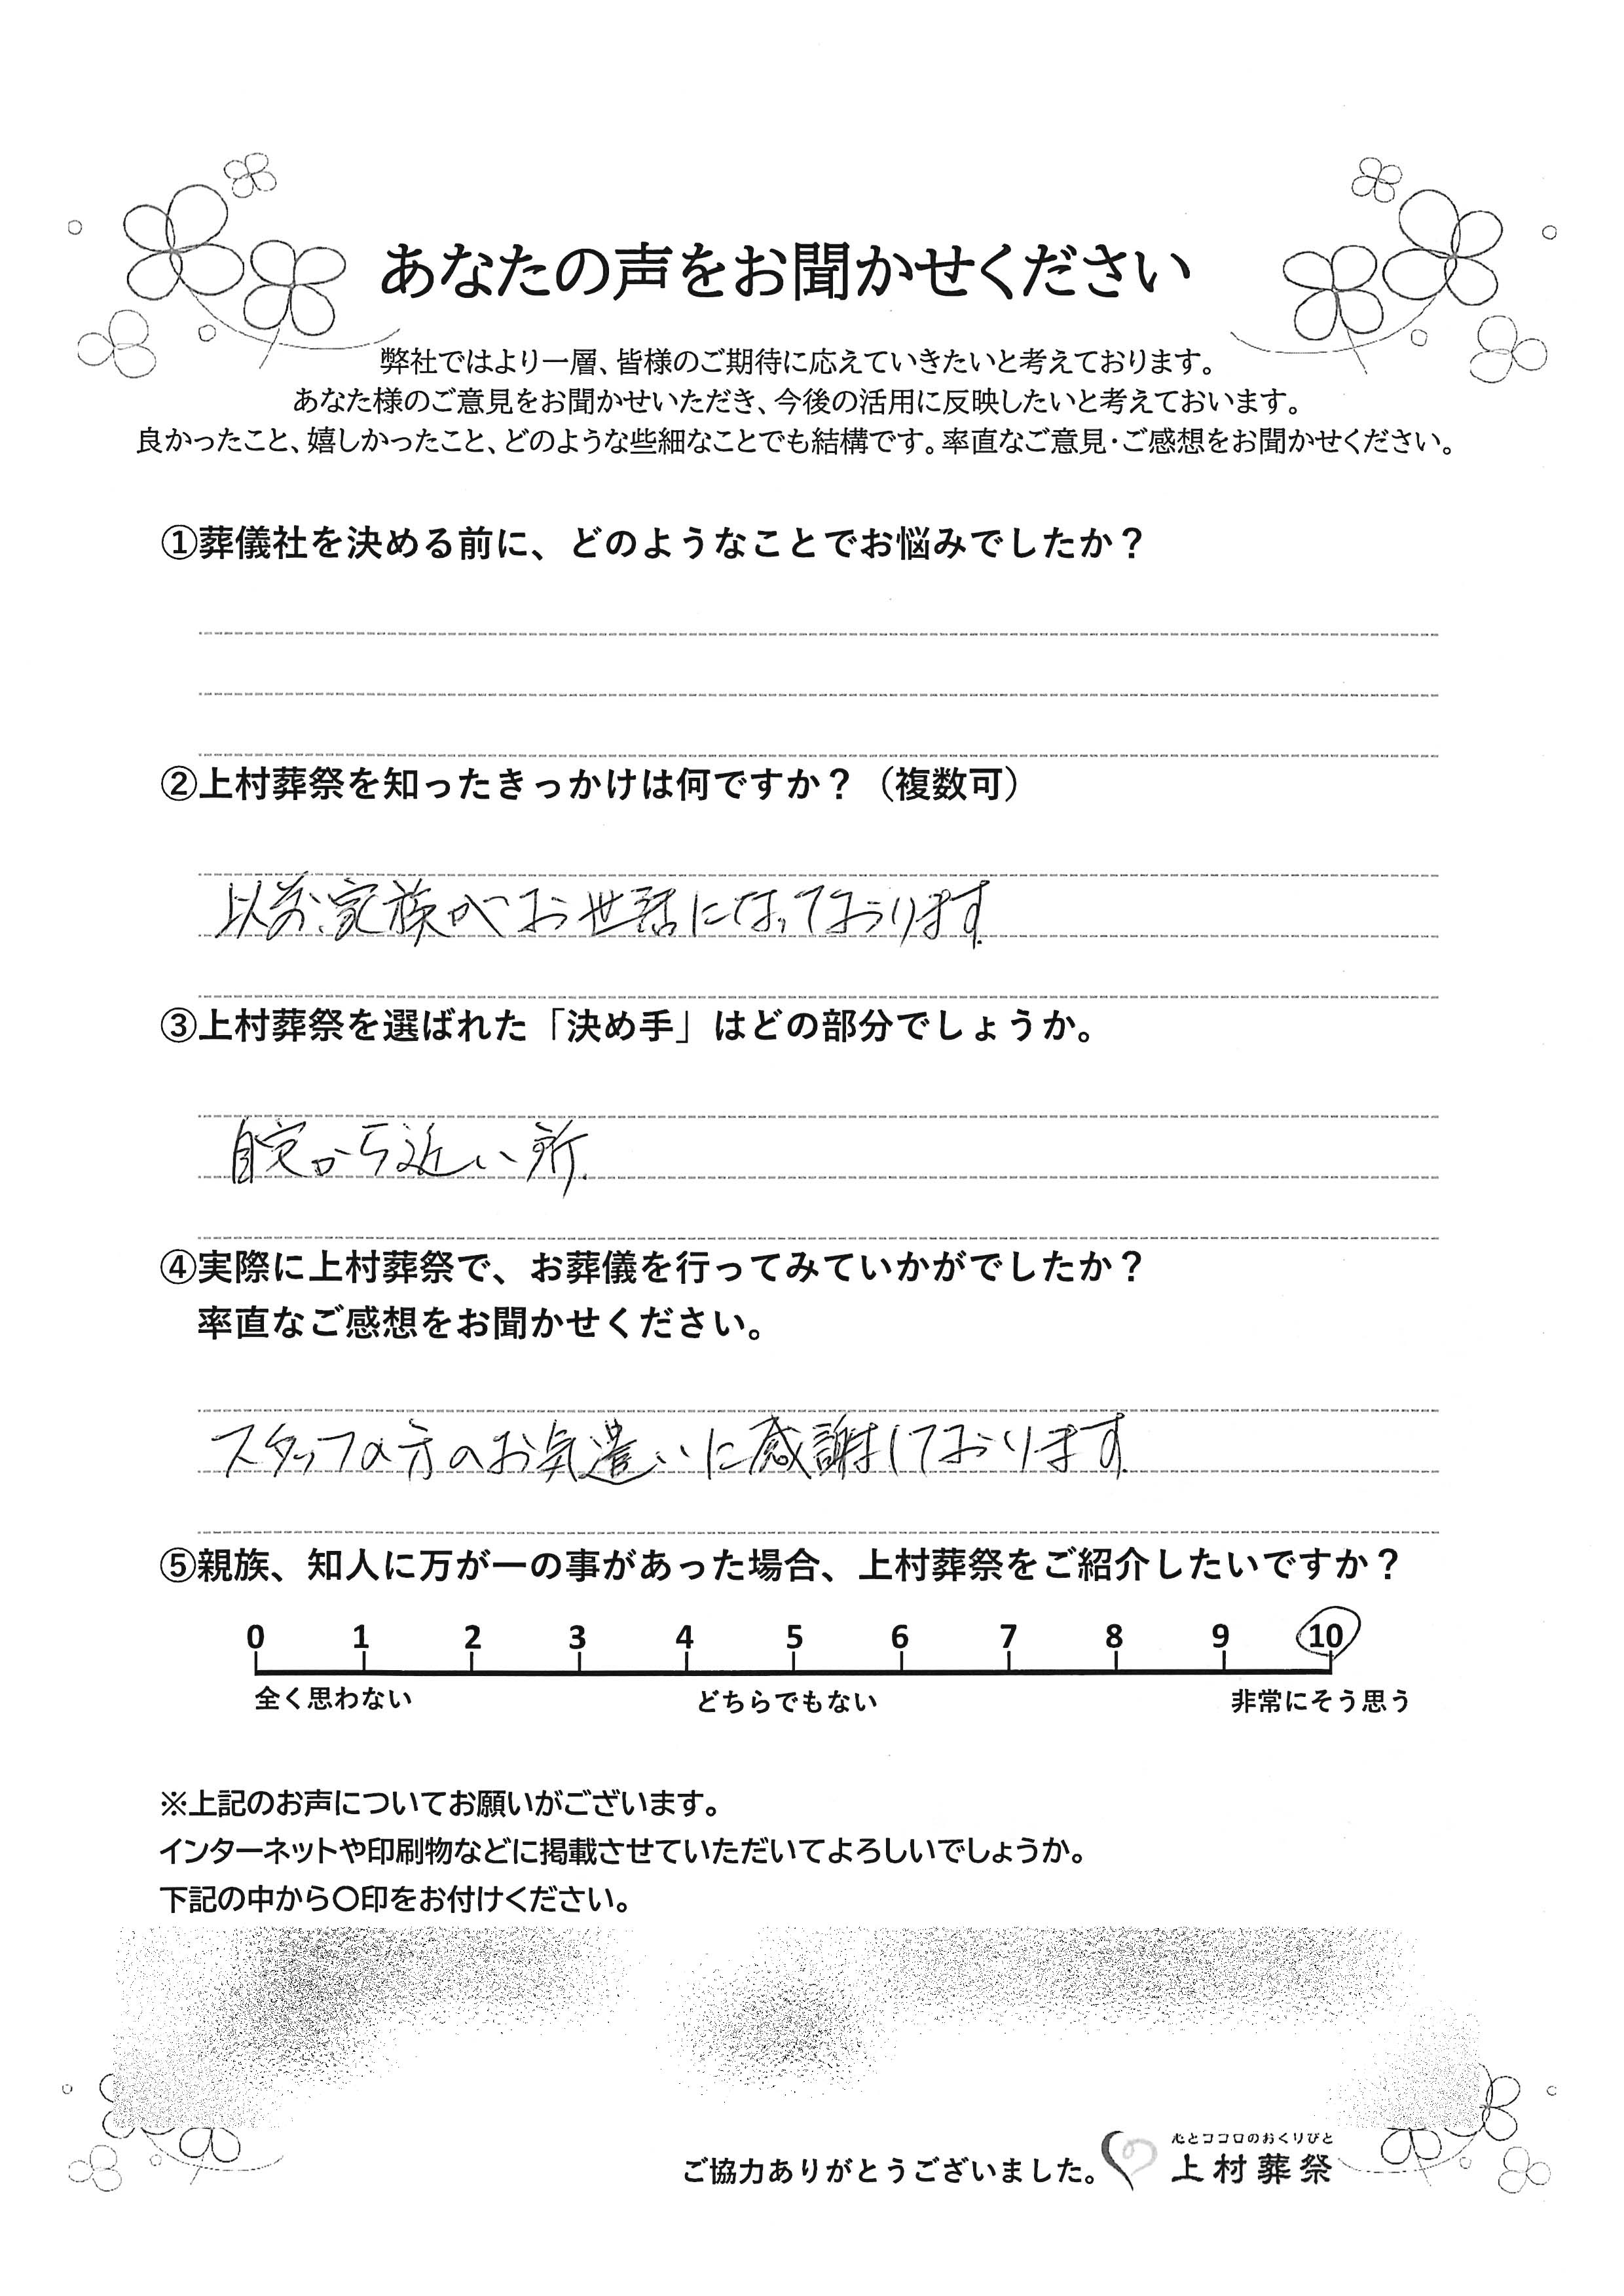 あなたの声をお聞かせください
弊社ではより一層、皆様のご期待に応えていきたいと考えております。
あなた様のご意見をお聞かせいただき、今後の活用に反映したいと考えておいます。
良かったこと、嬉しかったこと、どのような些細なことでも結構です。率直なご意見・ご感想をお聞かせください。
①葬儀社を決める前に、どのようなことでお悩みでしたか？
②上村葬祭を知ったきっかけは何ですか？（複数可）
以前、家族がお世話になっております
③上村葬祭を選ばれた「決め手」はどの部分でしょうか。
自宅から近い所.
④実際に上村葬祭で、お葬儀を行ってみていかがでしたか？
率直なご感想をお聞かせください。
スタッフの方のお気遣いに感謝しております
⑤親族、知人に万が一の事があった場合、上村葬祭をご紹介したいですか？
0 1 2 3 4 5 6 7 8 9 10
全く思わない どちらでもない 非常にそう思う
※上記のお声についてお願いがございます。
インターネットや印刷物などに掲載させていただいてよろしいでしょうか。
下記の中から〇印をお付けください。
心とココロのおくりびと
ご協力ありがとうございました。 上村葬祭